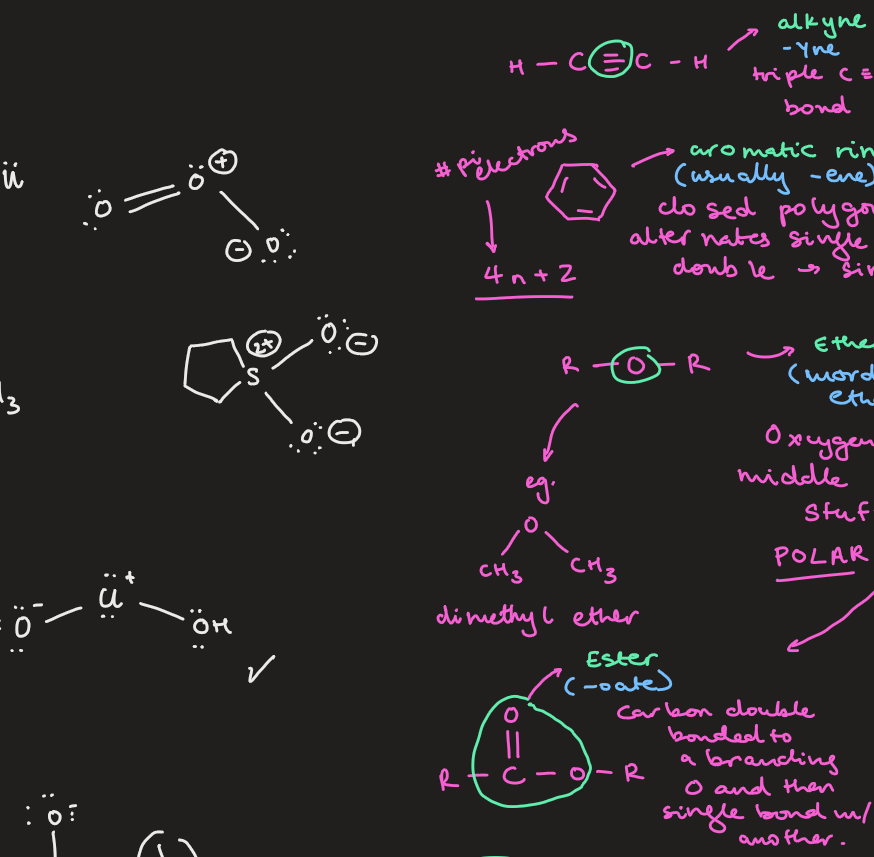 H — C ≡ C — H
alkyne
-yne
triple C ≡
bond
# pi electrons
4n+2
aromatic rin
(usually -ene)
closed polygo
alternates single
double → sin
Ö ⊕
:Ö
⊖ Ö:
2+
S
Ö: ⊖
:Ö: ⊖
R — O — R
Ethe
(word
eth
Oxygen
middle
stuf
POLAR
eg.
O
CH3 CH3
dimethyl ether
Cl +
O - OH
✓
Ester
(-oate)
O
R — C — O — R
Carbon double
bonded to
a branding
O and then
single bond w/
another.
:O:-